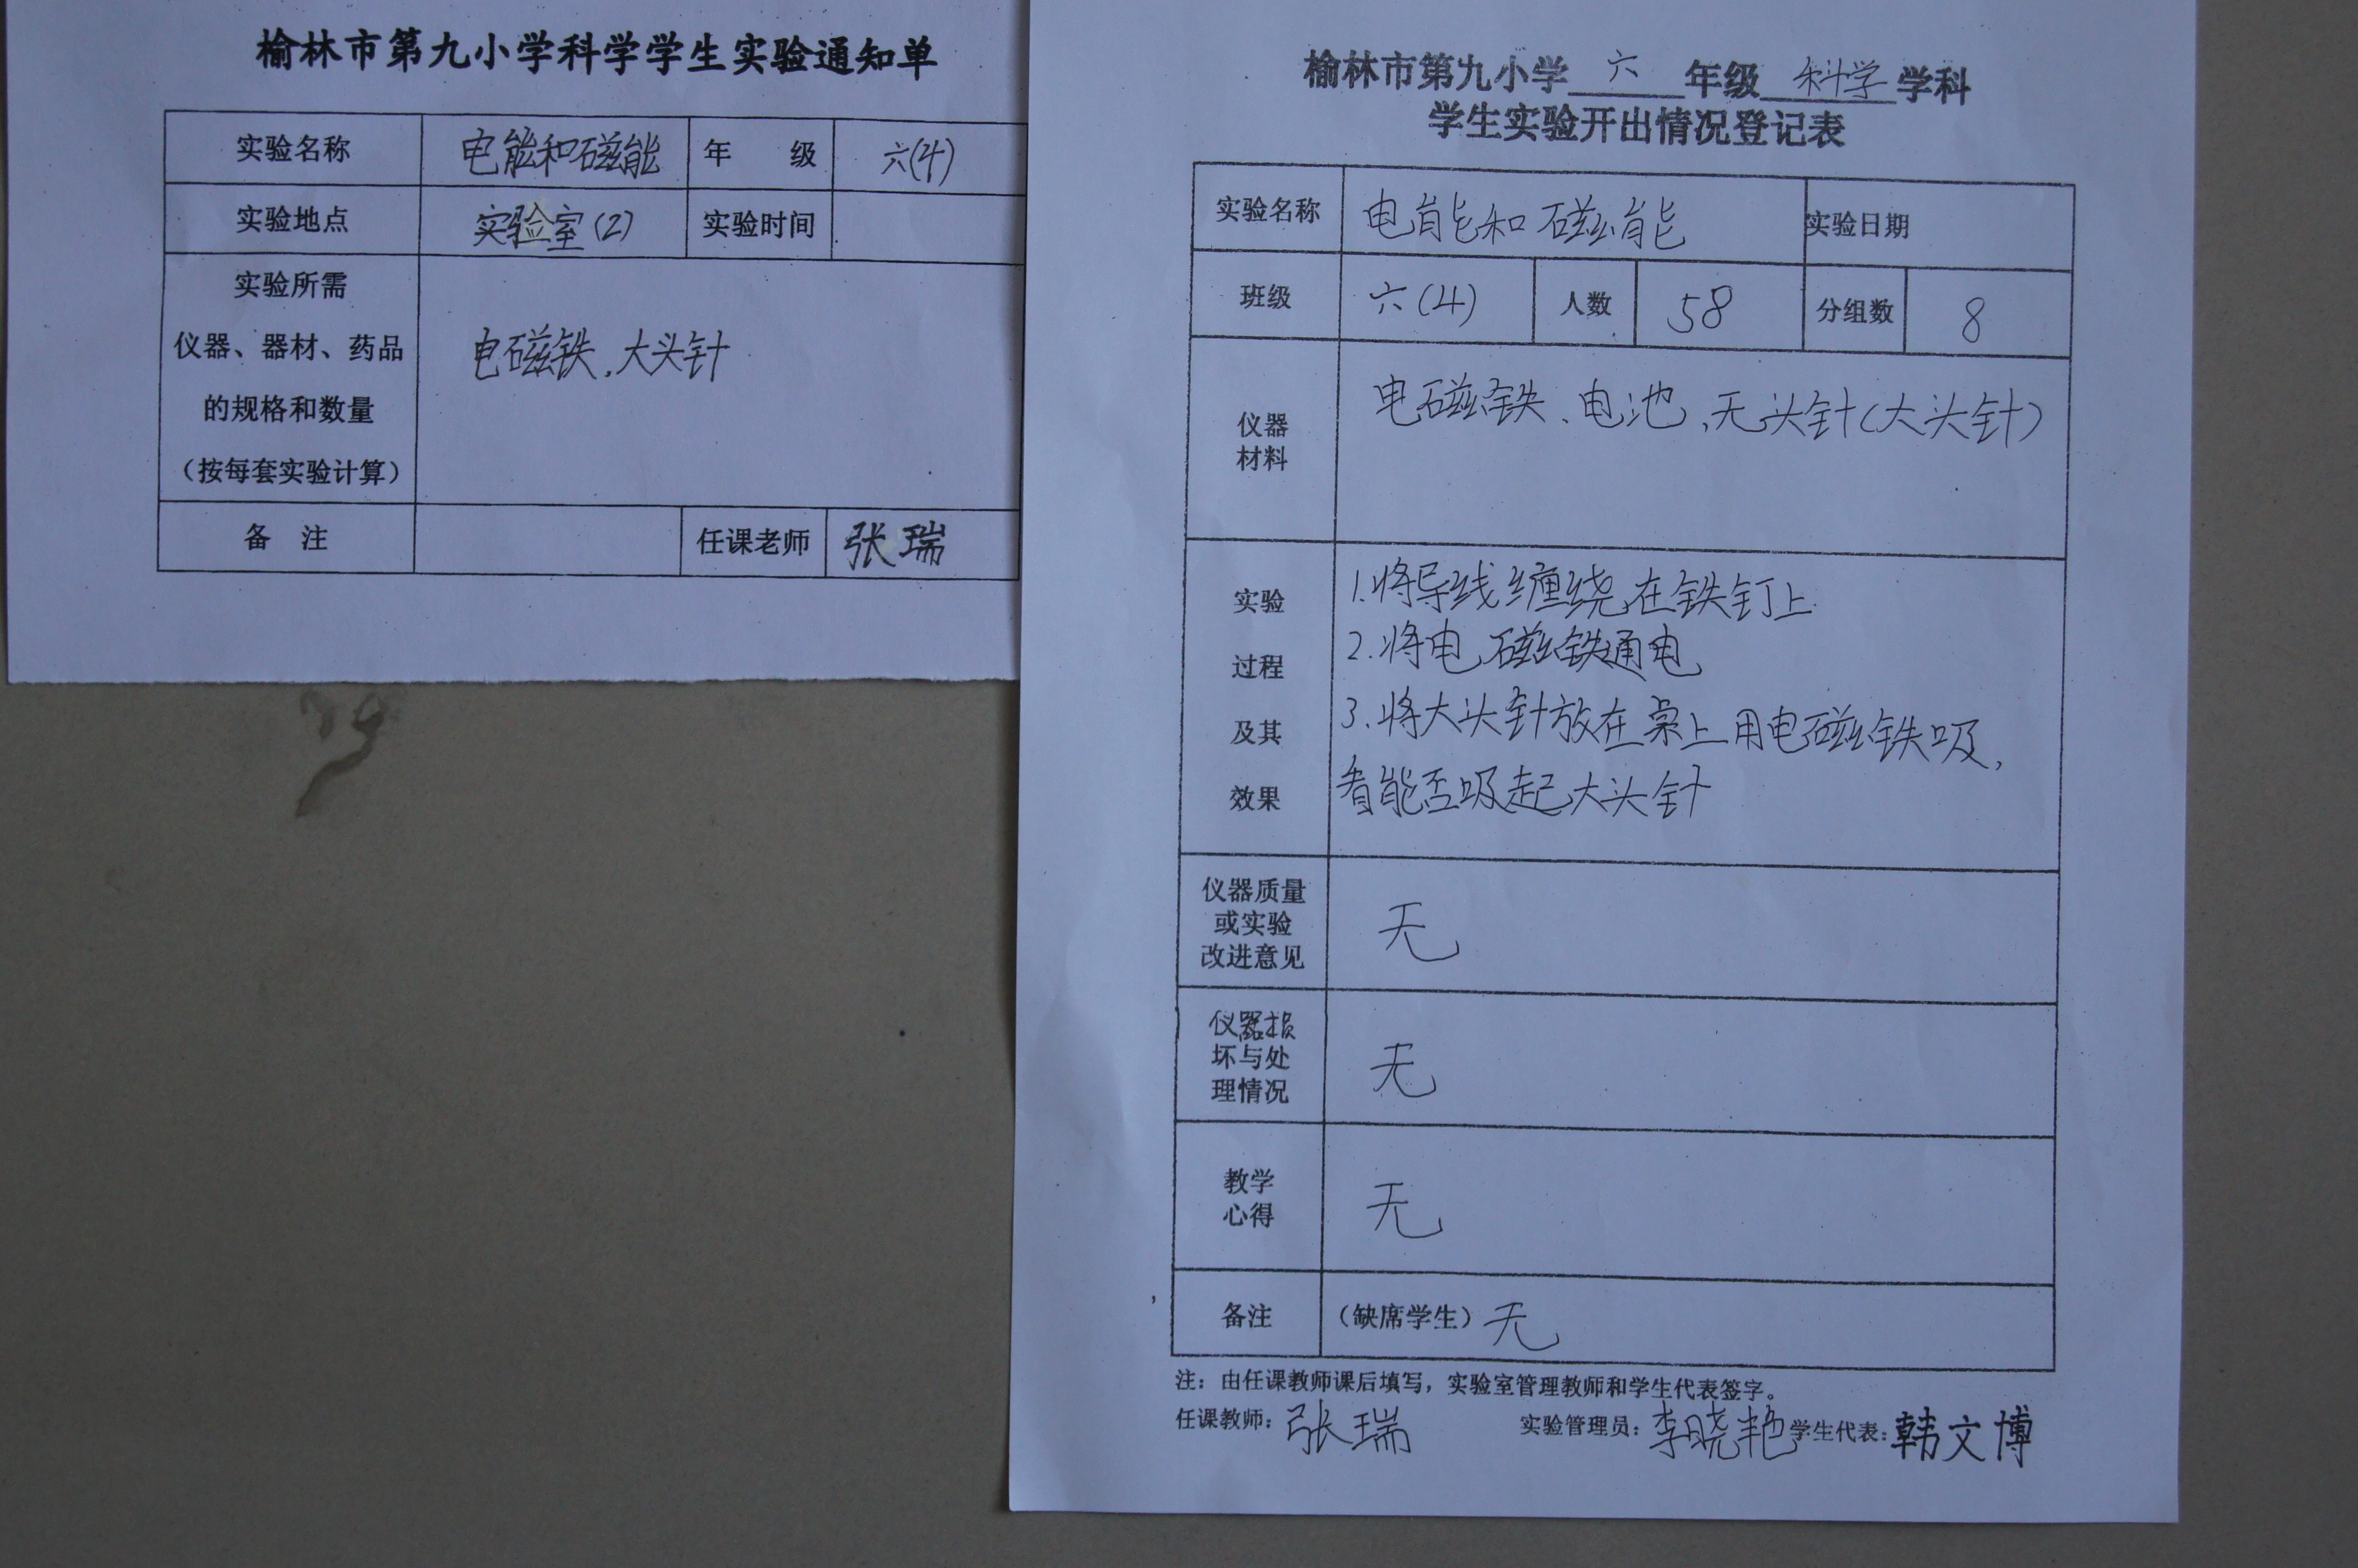 榆林市第九小学科学学生实验通知单
实验名称 电能和磁能 年 级 六(4)
实验地点 实验室(2) 实验时间
实验所需
仪器、器材、药品
的规格和数量
（按每套实验计算）
电磁铁、大头针
备 注 任课老师 张瑞
榆林市第九小学 六 年级 科学 学科
学生实验开出情况登记表
实验名称 电能和磁能 实验日期
班级 六(4) 人数 58 分组数 8
仪器
材料
电磁铁、电池、无头针(大头针)
实验
过程
及其
效果
1.将导线缠绕在铁钉上
2.将电磁铁通电
3.将大头针放在桌上用电磁铁吸,
看能否吸起大头针
仪器质量
或实验
改进意见
无
仪器损
坏与处
理情况
无
教学
心得
无
备注 （缺席学生）无
注：由任课教师课后填写，实验室管理教师和学生代表签字。
任课教师：张瑞 实验管理员：李晓艳 学生代表：韩文博